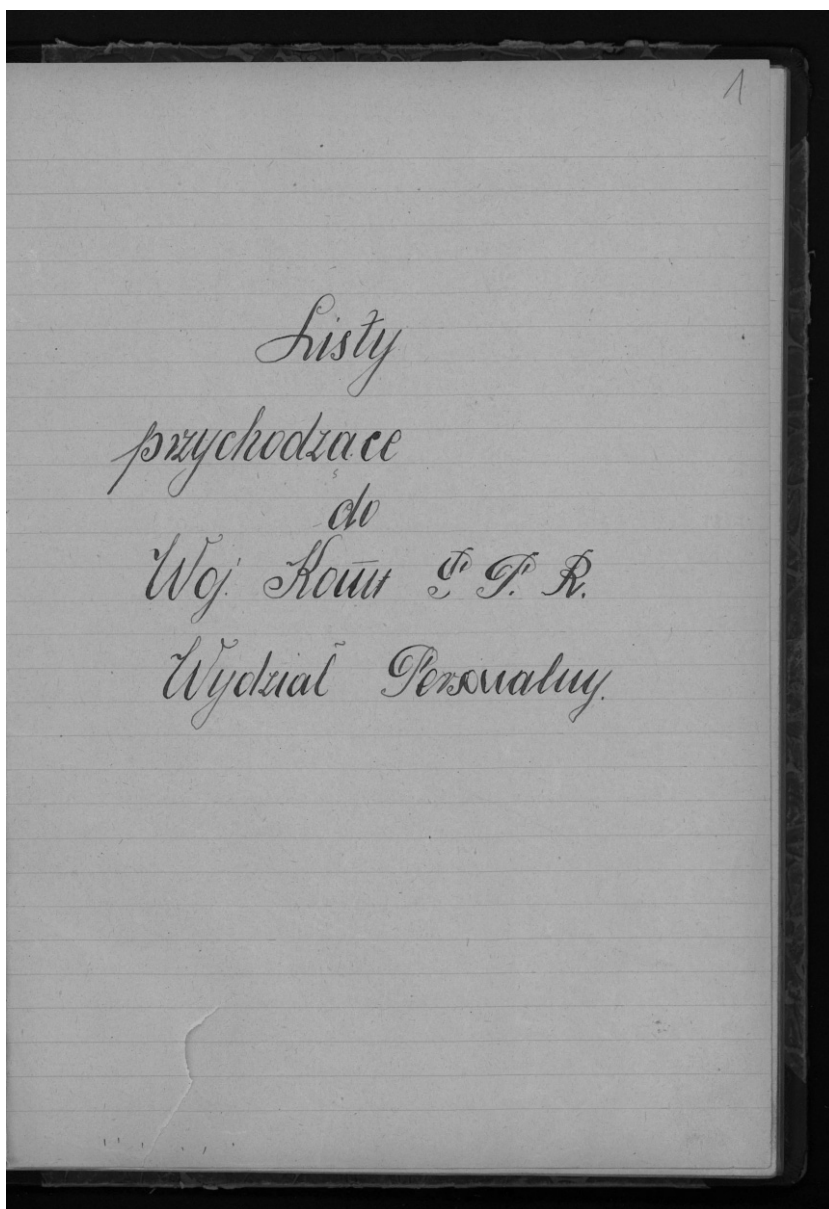 1
Listy
przychodzące
do
Woj. Komit P. P. R.
Wydział Personalny.